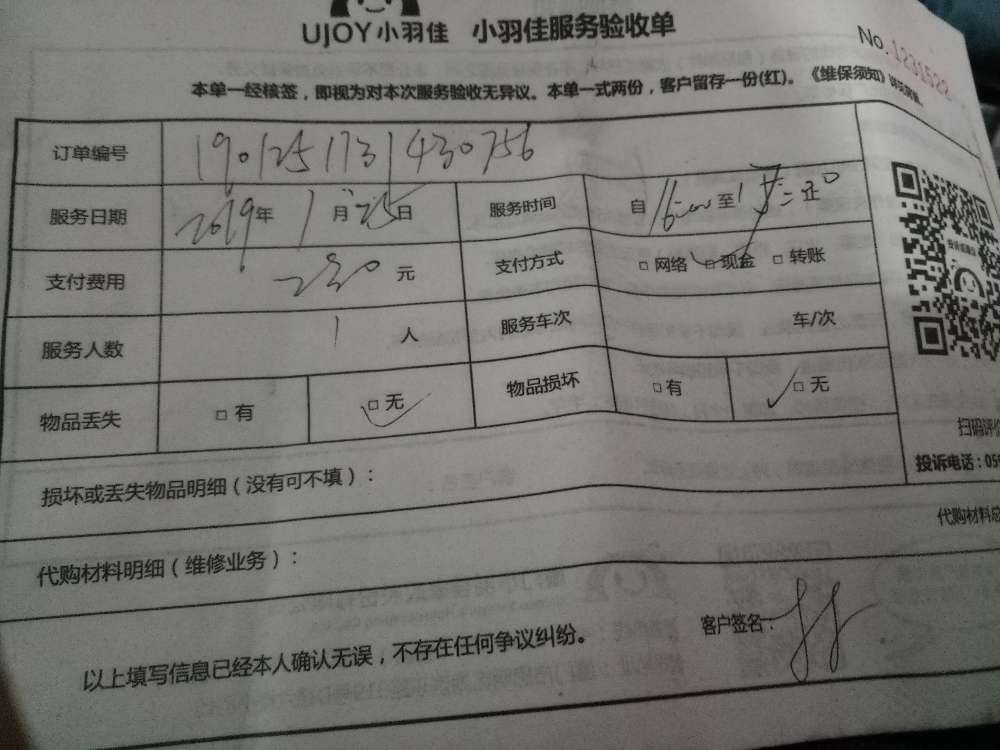 UJOY小羽佳 小羽佳服务验收单
No. 1231522
本单一经核签，即视为对本次服务验收无异议。本单一式两份，客户留存一份(红)。《维保须知》
订单编号 1901251131430756
服务日期 2019年 1月25日 服务时间 自 16:00 至
支付费用 230 元 支付方式 □ 网络 □ 现金 □ 转账
服务人数 1 人 服务车次 车/次
物品丢失 □ 有 □ 无 物品损坏 □ 有 □ 无
扫码评价
损坏或丢失物品明细（没有可不填）： 投诉电话：05
代购材料
代购材料明细（维修业务）：
客户签名：
以上填写信息已经本人确认无误，不存在任何争议纠纷。